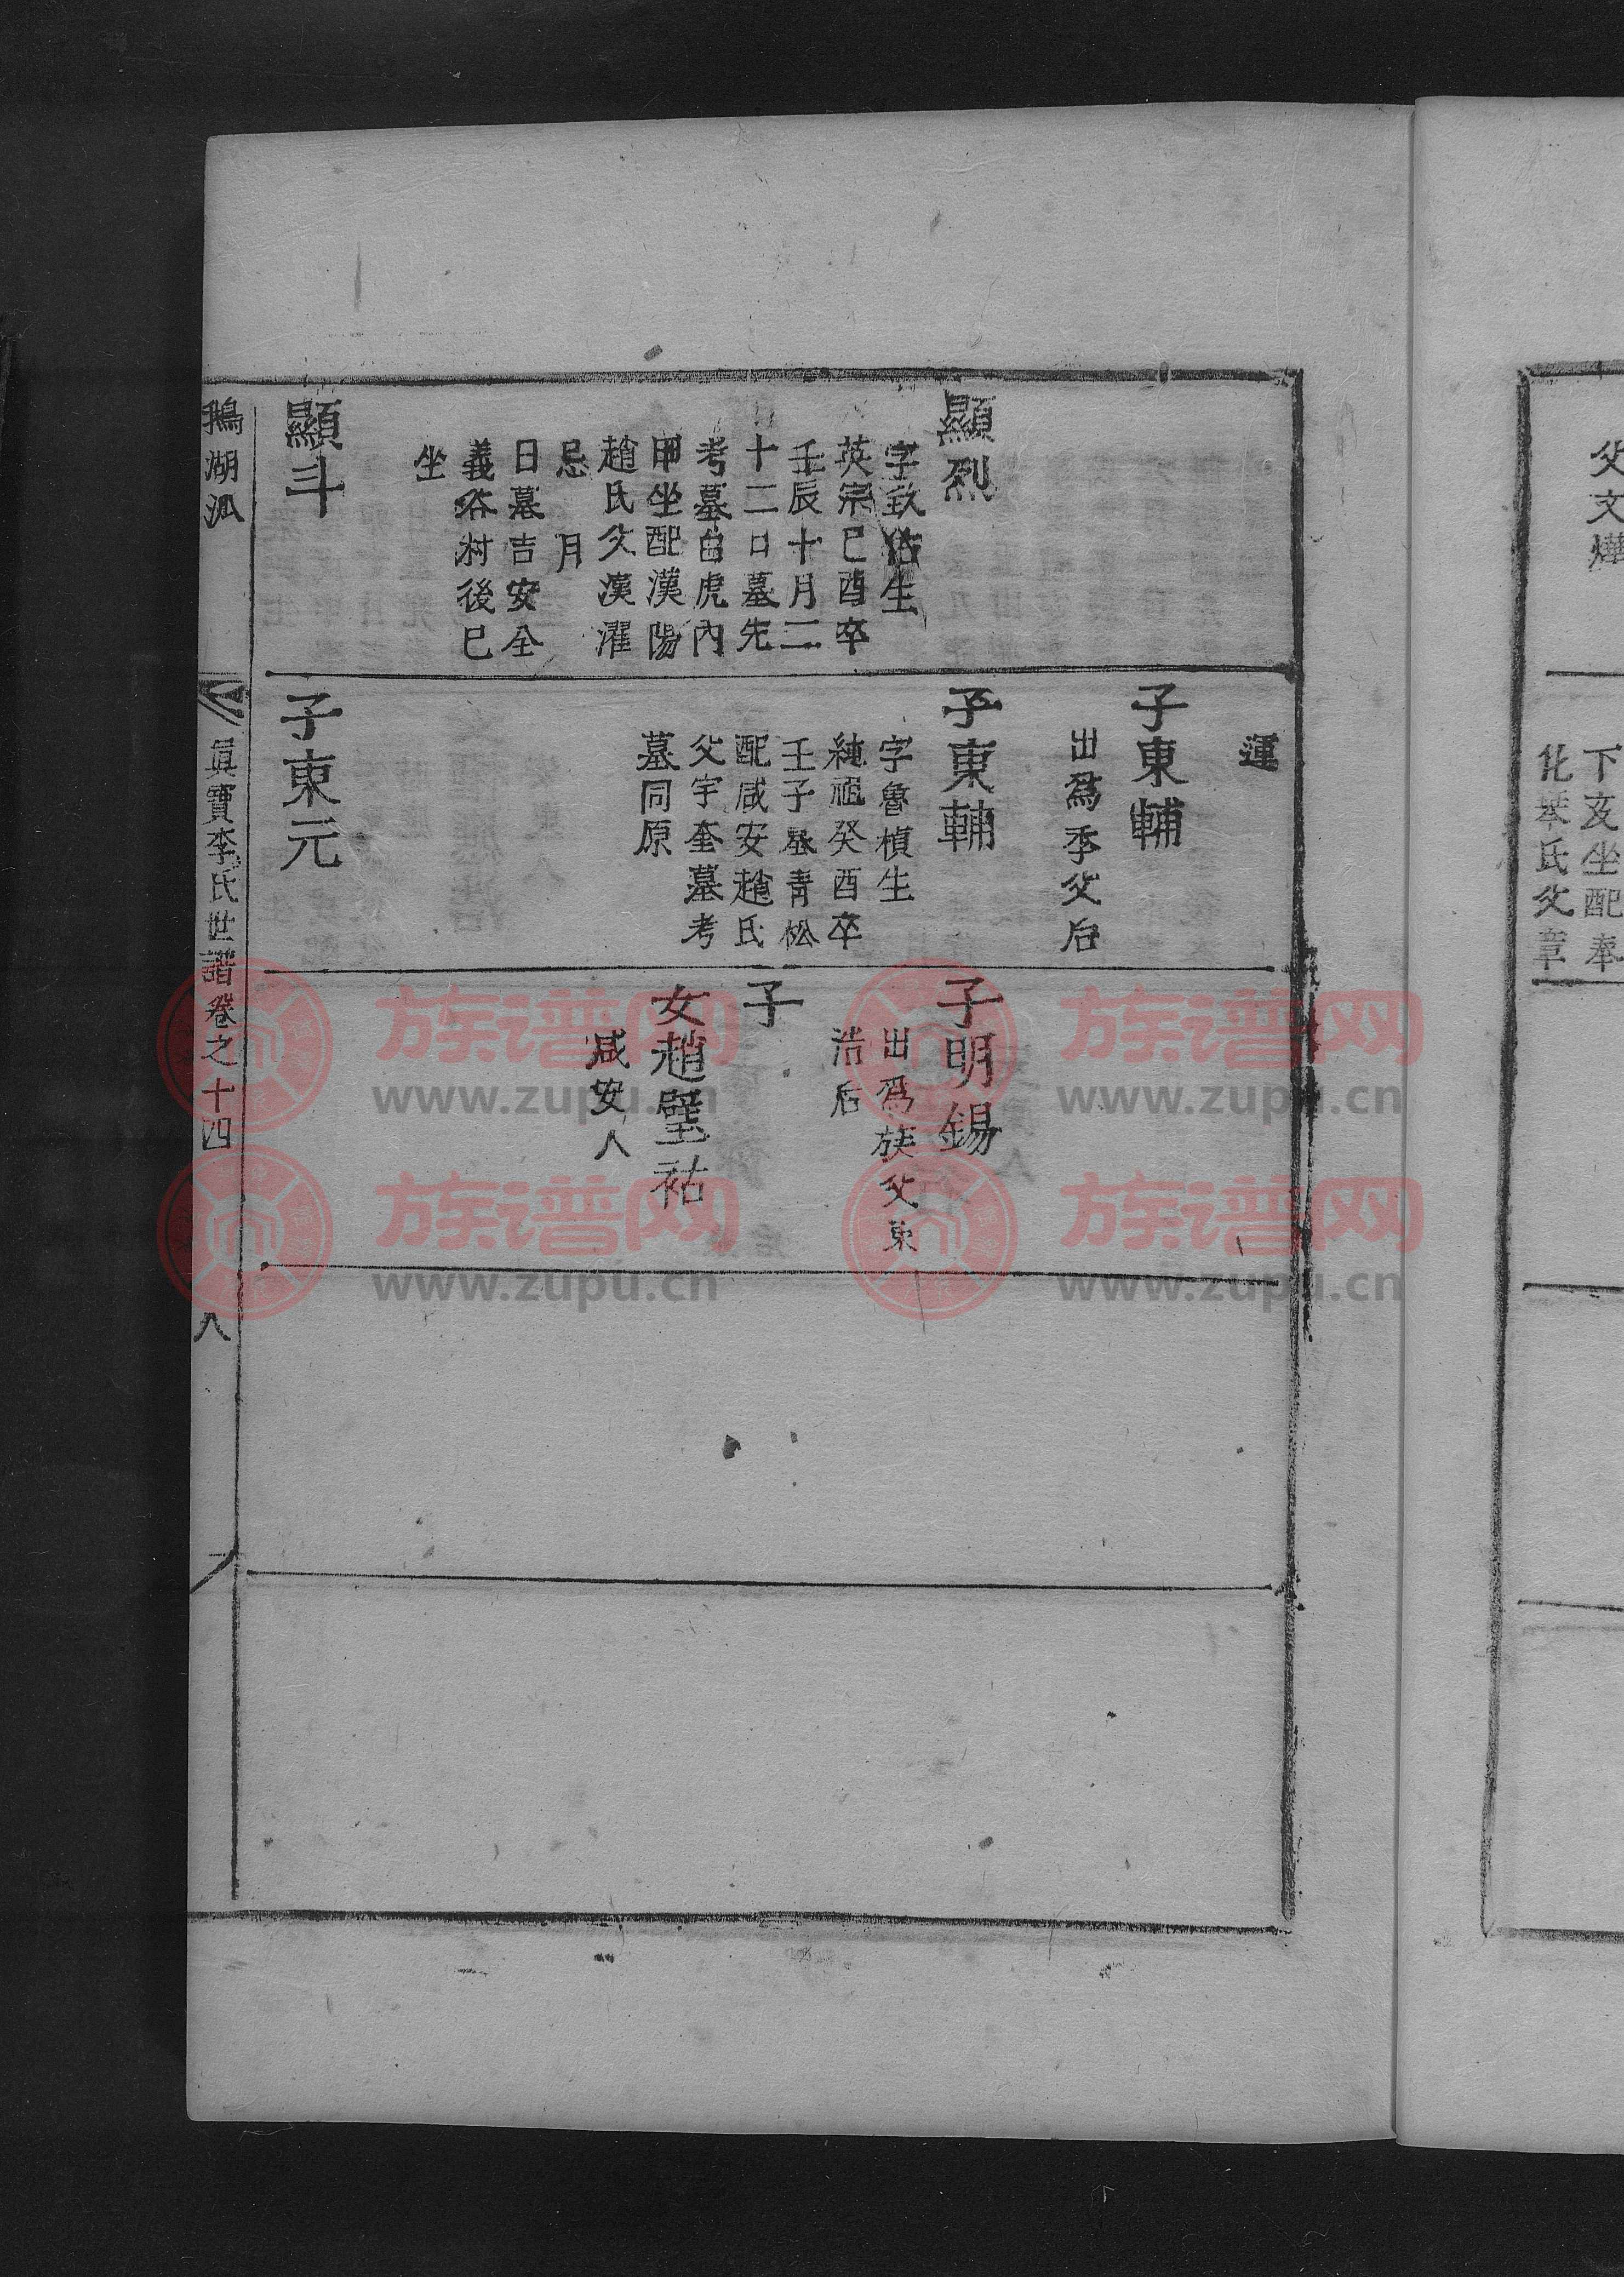 父文燁
下亥坐配奉
化琴氏父章
顯烈
字敦佸生
英宗己酉卒
壬辰十月二
十二日墓先
考墓白虎內
甲坐配漢陽
趙氏父漢濯
忌　月
日墓吉安全
義谷村後巳
坐
顯斗
運
子東輔
出爲季父后
子東輔
字魯楨生
純祖癸酉卒
壬子墓青松
配咸安趙氏
父宇奎墓考
墓同原
子東元
子明錫
出爲族父東
浩后
子
女趙壂祐
咸安人
鵝湖派
眞寶李氏世譜卷之十四
八
族谱网
www.zupu.cn
族谱网
www.zupu.cn
族谱网
www.zupu.cn
族谱网
www.zupu.cn